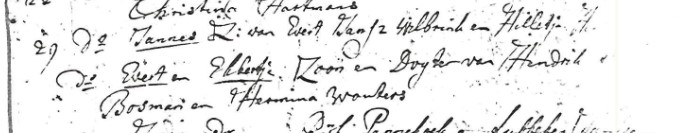 Christina Hartmans
29 Do Jannes Z: van Evert Jansz Welbrink en Hilletje
Do Evert en Ekbertje Zoon en Dogter van Hendrik
Bosman en Hermina Wouters